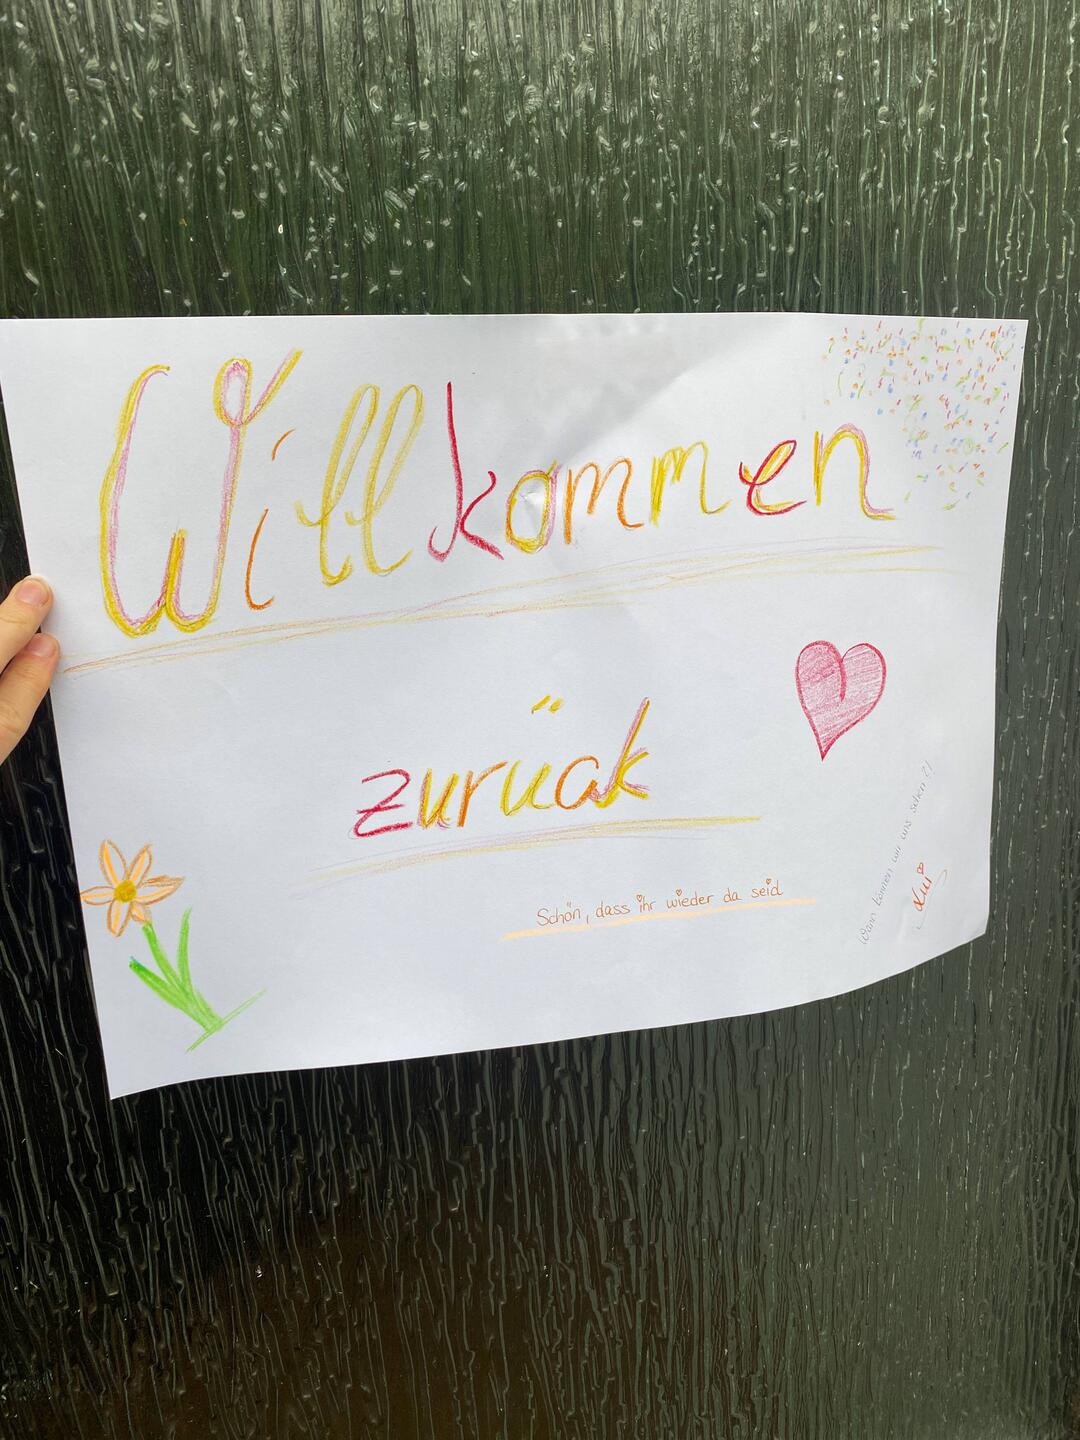 Willkommen
zurück
Schön, dass ihr wieder da seid
Wann können wir uns sehen?!